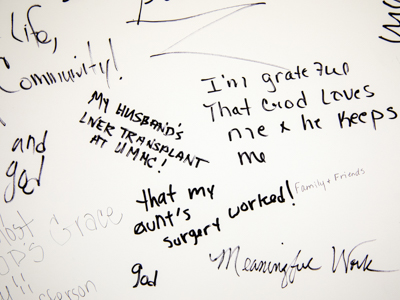 Life,
Community!
I'm grateful
That God Loves
me & he keeps
me
MY HUSBAND'S
LIVER TRANSPLANT
AT UMMC!
and
god
that my
aunt's
surgery worked!
Family + Friends
Grace
god
Meaningful Work